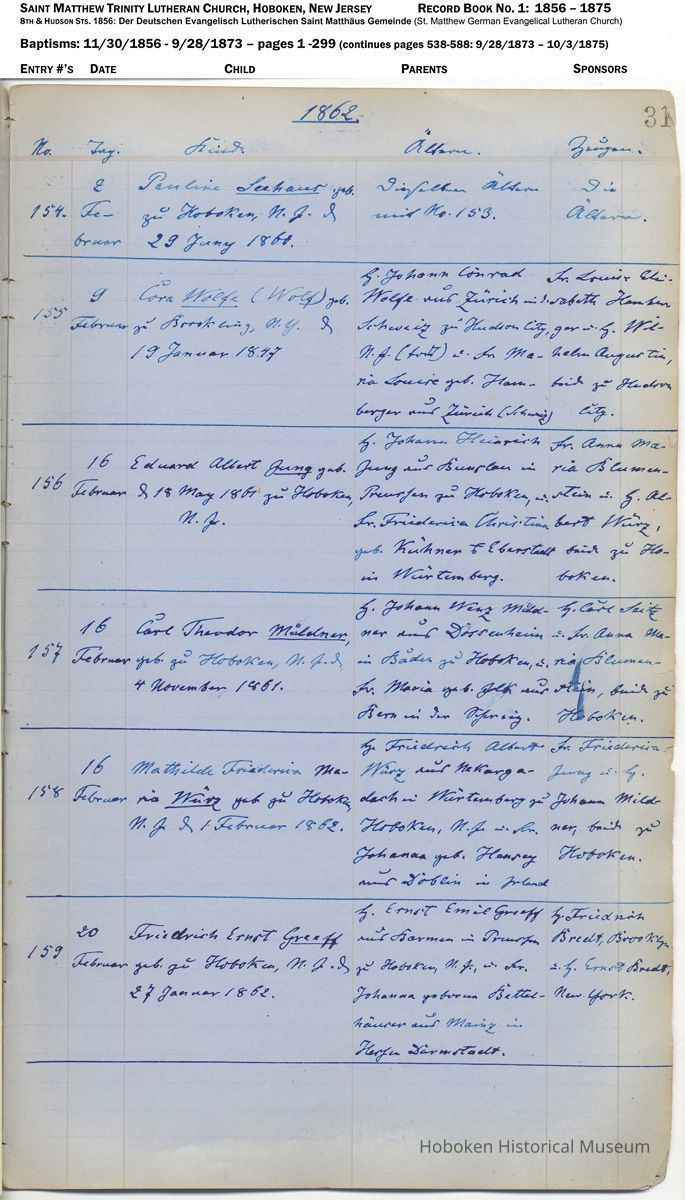 SAINT MATTHEW TRINITY LUTHERAN CHURCH, HOBOKEN, NEW JERSEY RECORD BOOK NO. 1: 1856 – 1875
8TH & HUDSON STS. 1856: Der Deutschen Evangelisch Lutherischen Saint Matthäus Gemeinde (St. Matthew German Evangelical Lutheran Church)
Baptisms: 11/30/1856 - 9/28/1873 – pages 1 -299 (continues pages 538-588: 9/28/1873 – 10/3/1875)
ENTRY #'S DATE CHILD PARENTS SPONSORS
1862.
31
No. Tag. Kind. Ältern. Zeugen.
154.
2
Fe-
bruar
Pauline Seehaus geb.
zu Hoboken, N. J. d
29 Juny 1860.
Dieselben Ältern
mit No. 153.
Die
Ältern.
155
9
Februar
Cora Wolfe (Wolf) geb.
zu Brooklyn, N.Y. d
19 Januar 1847
H. Johann Conrad
Wolfe aus Zürich in d.
Schweiz zu Hudson City,
N. J. (todt) u. Fr. Ma-
ria Louise geb. Ham-
berger aus Zürich (Schweiz)
Fr. Louise Eli-
sabeth Hamber-
ger u. H. Wil-
helm Augustin,
beide zu Hudson
City.
156
16
Februar
Eduard Albert Jung geb.
d 18 May 1861 zu Hoboken,
N. J.
H. Johann Heinrich
Jung aus Bunzlau in
Preussen zu Hoboken, u.
Fr. Friederica Christina
geb. Kühner v Eberstadt
in Würtemberg.
Fr. Anna Ma-
ria Blumen-
stein u. H. Al-
bert Würz,
beide zu Ho-
boken.
157
16
Februar
Carl Theodor Müldner,
geb. zu Hoboken, N. J. d.
4 November 1861.
H. Johann Wenz Müld-
ner aus Dossenheim
in Baden zu Hoboken, u.
Fr. Maria geb. aus
Bern in der Schweiz.
H. Carl Seitz
u. Fr. Anna Ma-
ria Blumen-
stein, beide zu
Hoboken.
158
16
Februar
Mathilde Friederica Ma-
ria Würz geb zu Hoboken
N. J. d 1 Februar 1862.
H. Friedrich Albert
Würz aus Nekarga-
dach in Würtemberg zu
Hoboken, N. J. u. Fr.
Johanna geb. Hensey
aus Döblin in Irland
Fr. Friederica
Jung u. H.
Johann Mild-
ner, beide zu
Hoboken.
159
20
Februar
Friedrich Ernst Greeff
geb. zu Hoboken, N. J. d
27 Januar 1862.
H. Ernst Emil Greeff
aus Barmen in Preussen
zu Hoboken, N. J., u. Fr.
Johanna geborene Bettel-
häuser aus Mainz in
Hessen Darmstadt.
H. Friedrich
Bredt, Brooklyn
u. H. Ernst Bredt,
New York.
Hoboken Historical Museum